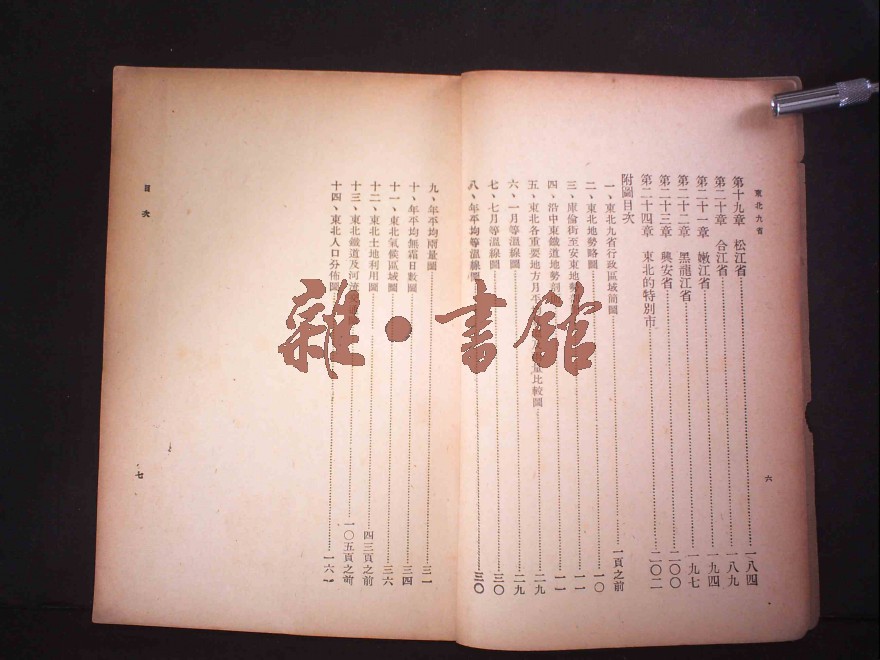 東北九省
第十九章 松江省 一八四
第二十章 合江省 一八九
第二十一章 嫩江省 一九四
第二十二章 黑龍江省 一九七
第二十三章 興安省 二〇〇
第二十四章 東北的特別市 二〇二
附圖目次
一、東北九省行政區域簡圖 一頁之前
二、東北地勢略圖 一〇
三、庫倫街至安東地勢 一一
四、沿中東鐵道地勢剖 一一
五、東北各重要地方月平 量比較圖 二九
六、一月等溫線圖 二九
七、七月等溫線圖 三〇
八、年平均等溫線圖 三〇
六
九、年平均雨量圖 三一
十、年平均無霜日數圖 三四
十一、東北氣候區域圖 三六
十二、東北土地利用圖 四三頁之前
十三、東北鐵道及河流 一〇五頁之前
十四、東北人口分佈圖 一六一
目次
七
雜·書館